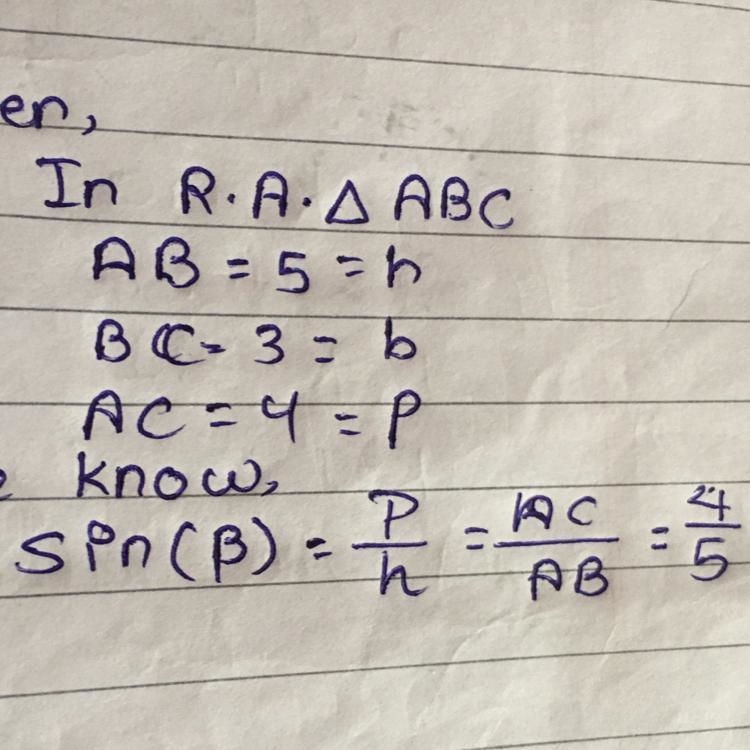 en,
In R.A.Δ ABC
AB = 5 = h
BC = 3 = b
AC = 4 = p
e know,
sin(β) = p/h = AC/AB = 4/5